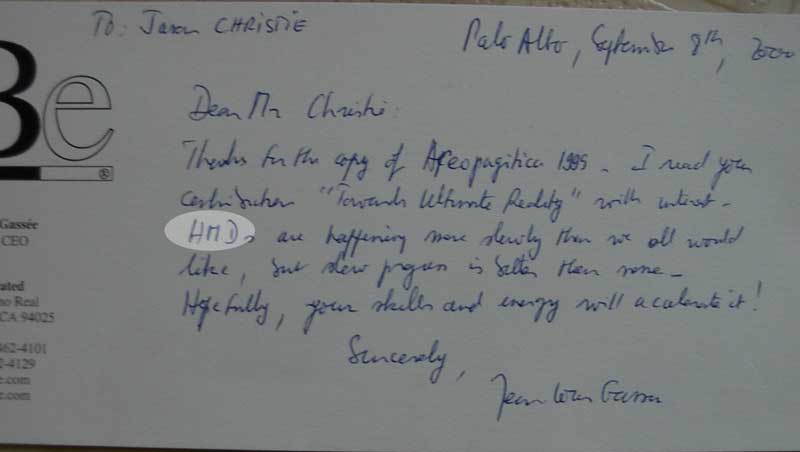 To: Jason CHRISTIE
Palo Alto, September 8th, 2000
Be
®
Dear Mr Christie:
Thanks for the copy of Areopagitica 1995 - I read your
contribution "Towards Ultimate Reality" with interest -
HMDs are happening more slowly than we all would
like, but slow progress is better than none -
Hopefully, your skills and energy will accelerate it!
Sincerely,
Jean Louis Gassée
Gassée
CEO
ated
no Real
CA 94025
462-4101
2-4129
e.com
e.com